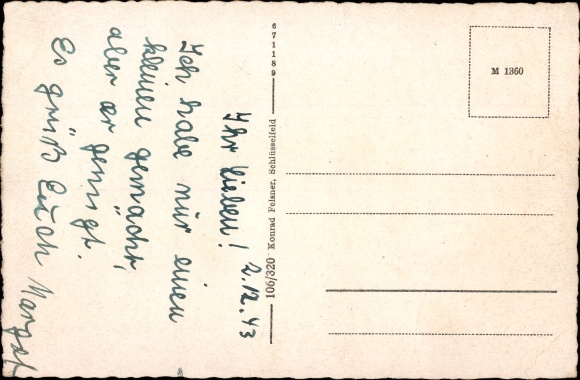 2.12.43
Ihr Lieben!
Ich habe nur einen
kleinen gemacht,
aber er genügt.
Es grüßt Euch Margot
671189
106/320 Konrad Felsner, Schlüsselfeld
M 1360